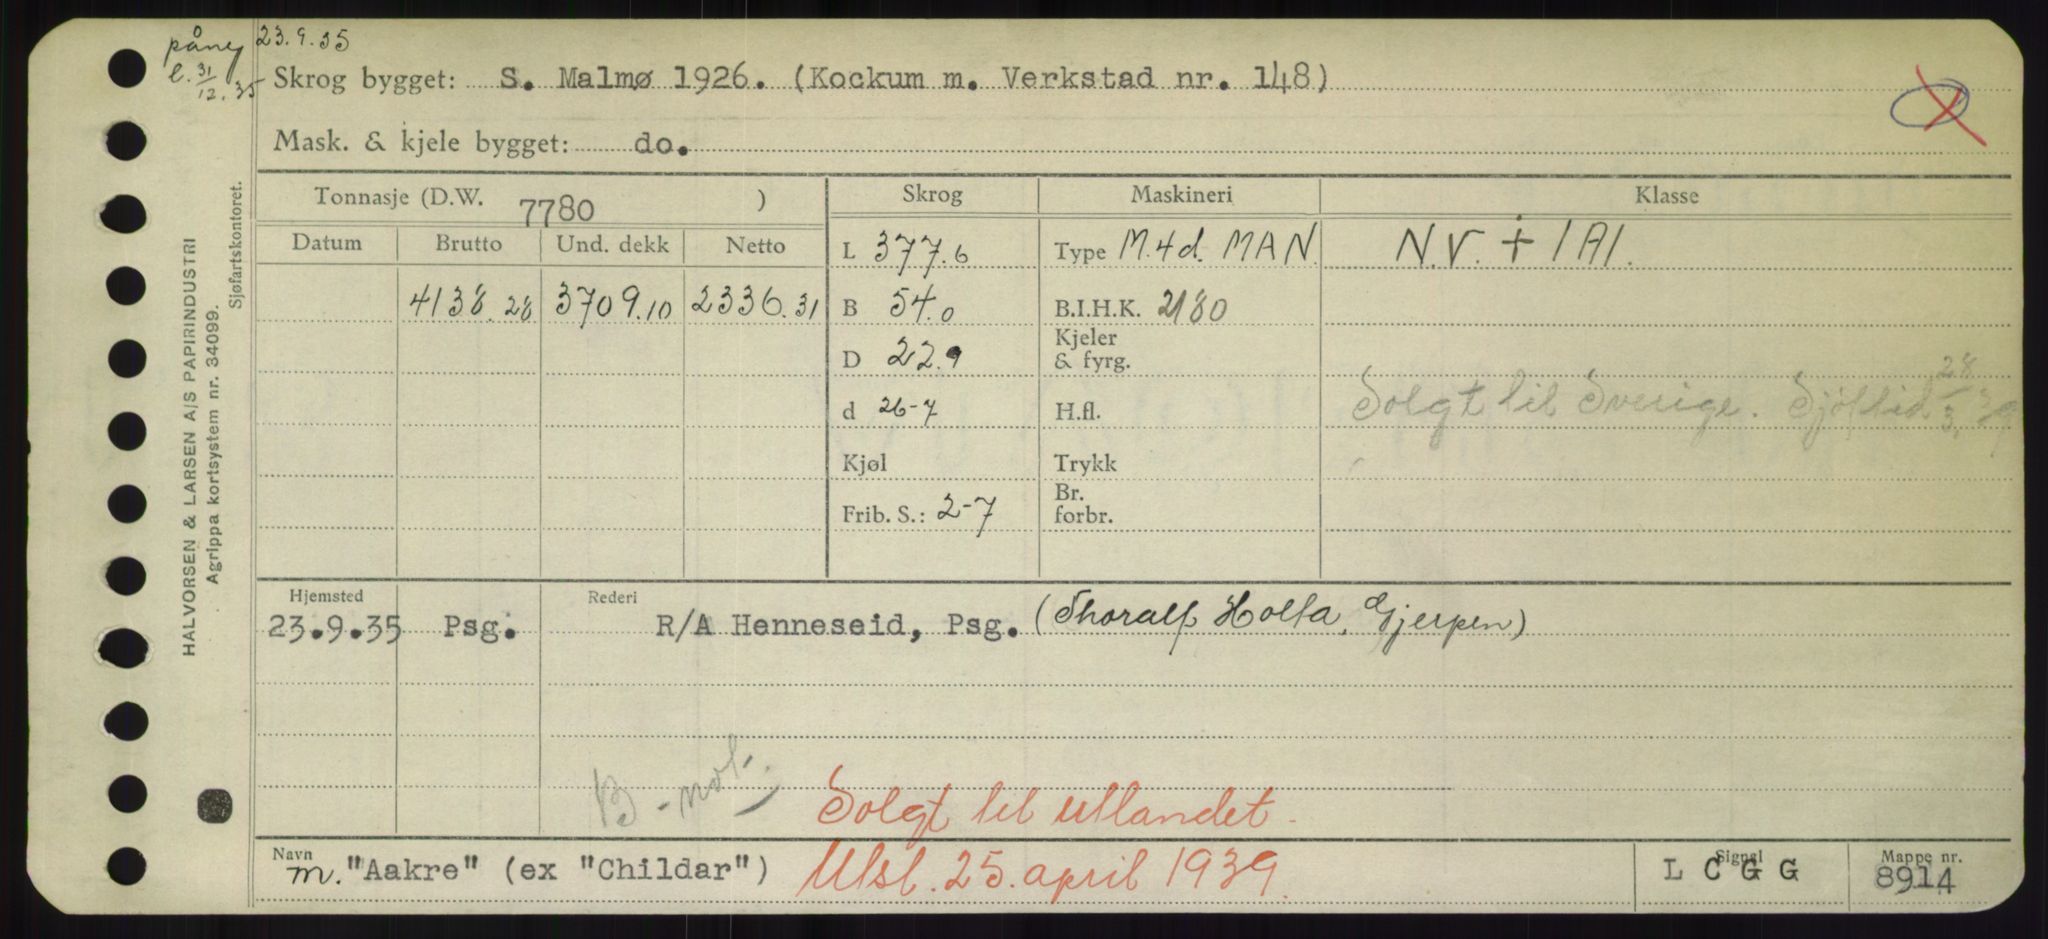 påny 23.9.35
l. 31/12.35
Skrog bygget: S. Malmø 1926. (Kockum m. Verkstad nr. 148)
Mask. & kjele bygget: do.
Tonnasje (D.W. 7780 ) Skrog Maskineri Klasse
Datum Brutto Und. dekk Netto L 377.6 Type M.4d. MAN. N.V. + 1A1.
4138.28 3709.10 2336.31 B 54.0 B.I.H.K. 2180
D 22.9 Kjeler & fyrg.
d 26-7 H.fl. Solgt til Sverige. Sjöftid 28/3.39
Kjøl Trykk
Frib. S.: 2-7 Br. forbr.
Hjemsted Rederi
23.9.35 Psg. R/A Henneseid, Psg. (Thoralf Holta, Gjerpen)
B-not.
Solgt til utlandet.
Navn m. "Aakre" (ex "Childar") Utsl. 25. april 1939. Signal L C G G Mappe nr. 8914
HALVORSEN & LARSEN A/S PAPIRINDUSTRI
Agrippa kortsystem nr. 34099.
Sjøfartskontoret.